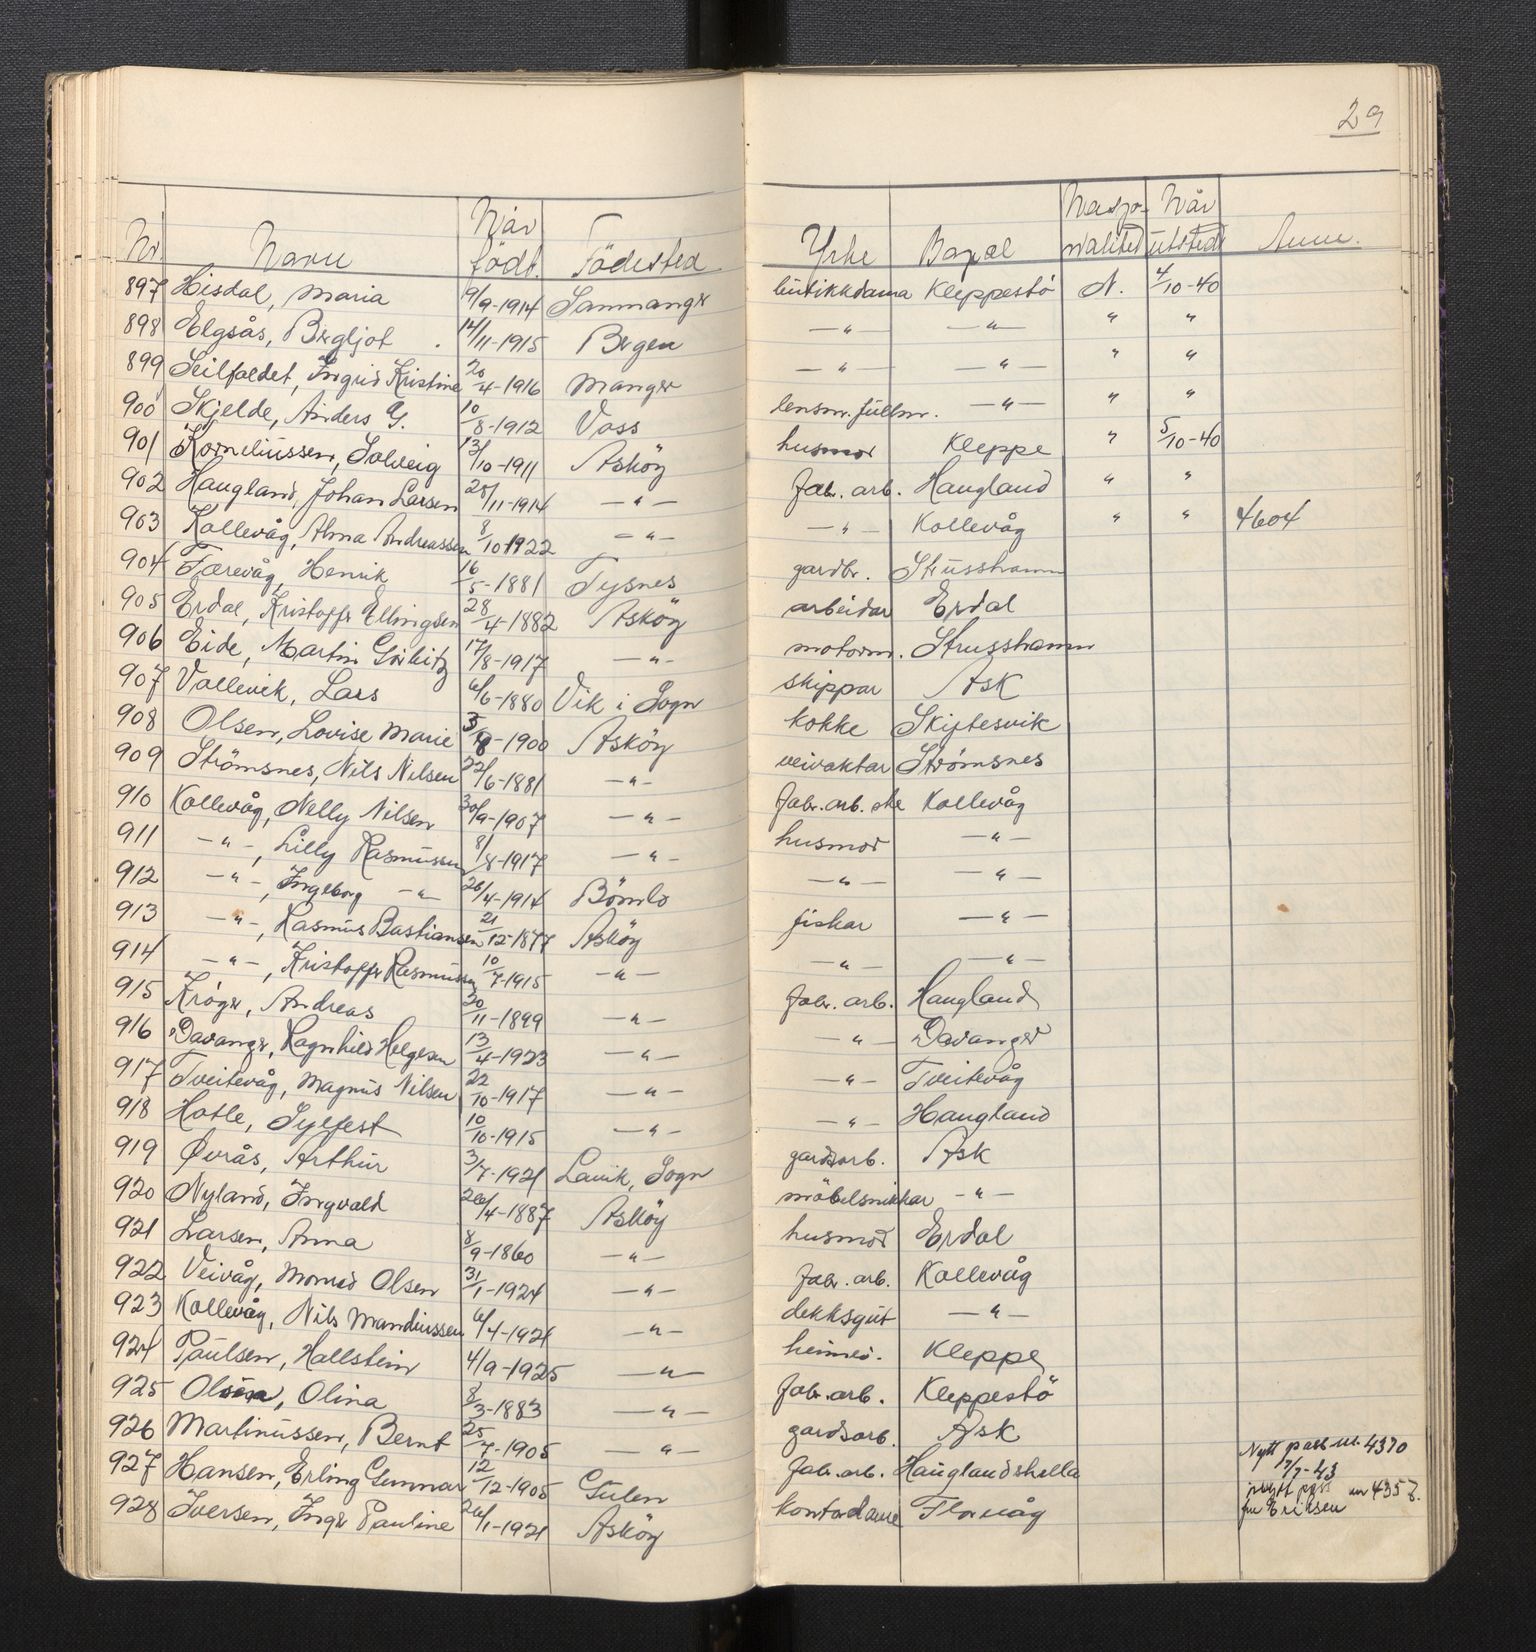 29
Nr. Navn Når födt. Födested Yrke Bopæl Nasjonalitet Når utsted Anm.
897 Hisdal, Maria 19/9-1914 Samnanger butikkdama Kleppestö N. 4/10-40
898 Elgsås, Bergljot 14/11-1915 Bergen —"— —"— " "
899 Seilfaldet, Ingrid Kristine 20/4-1916 Manger —"— —"— " "
900 Skjelde, Anders G. 10/8-1912 Voss lensm. fullm. —"— " "
901 Korneliussen, Solveig 13/10-1911 Asköy husmor Kleppe " 5/10-40
902 Haugland, Johan Larsen 28/11-1914 —"— fabr. arb. Haugland " "
903 Kollevåg, Alma Andreassen 8/10 1922 —"— —"— Kollevåg " " 4604
904 Tærevåg, Henrik 16/5-1881 Tysnes gardbr. Strusshamn
905 Erdal, Kristoffer Ellingsen 28/4-1882 Asköy arbeidar Erdal
906 Eide, Martin Görbitz 17/8-1917 —"— motorm. Strusshamn
907 Vallevik, Lars 6/6-1880 Vik i Sogn skippar Ask
908 Olsen, Lovise Marie 5/8-1900 Asköy kokke Skiftesvik
909 Strömsnes, Nils Nilsen 22/6-1881 —"— veivaktar Strømsnes
910 Kollevåg, Nelly Nilsen 30/9-1907 —"— fabr. arb. ske Kollevåg
911 —"—, Lilly Rasmussen 8/8-1917 —"— husmor —"—
912 —"—, Ingeborg —"— 26/4-1914 Bömlo —"— —"—
913 —"—, Rasmus Bastiansen 21/12-1877 Asköy fiskar —"—
914 —"—, Kristoffer Rasmussen 10/7-1915 —"— —"— —"—
915 Kröger, Andreas 20/11-1899 —"— fabr. arb. Haugland
916 Davanger, Ragnhild Helgesen 13/4-1923 —"— —"— Davanger
917 Tveitevåg, Magnus Nilsen 22/10-1917 —"— —"— Tveitevåg
918 Hatle, Sylfest 10/10-1915 —"— —"— Haugland
919 Øvrås, Arthur 3/7-1921 Lavik, Sogn gardsarb. Ask
920 Nyland, Ingvald 26/4-1887 Asköy möbelsnikkar —"—
921 Larsen, Anna 8/9-1860 —"— husmor Erdal
922 Veivåg, Monrad Olsen 31/1-1924 —"— fabr. arb. Kollevåg
923 Kollevåg, Nils Mandiussen 6/4-1921 —"— dekksgut —"—
924 Paulsen, Hallstein 4/9-1925 —"— heimev. Kleppe
925 Olsen, Olina 8/3-1883 —"— fabr. arb. Kleppestö
926 Martinussen, Bernt 25/7-1905 —"— gardsarb. Ask
927 Hansen, Erling Gunnar 12/12-1905 Gulen fabr. arb. Hauglandshella Nytt pass nr. 4370 7/7-43
928 Iversen, Inger Pauline 26/1-1921 Asköy kontordame Florvåg nytt pass nr 4357. fru Eriksen